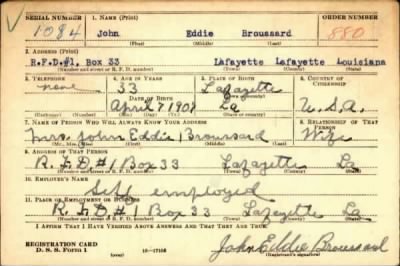 SERIAL NUMBER 1. NAME (Print) ORDER NUMBER
1084 John Eddie Broussard 880
(First) (Middle) (Last)
2. ADDRESS (Print)
R.F.D.#1, Box 33 Lafayette Lafayette Louisiana
(Number and street or R. F. D. number) (Town) (County) (State)
3. TELEPHONE 4. AGE IN YEARS 5. PLACE OF BIRTH 6. COUNTRY OF CITIZENSHIP
none 33 Lafayette
DATE OF BIRTH (Town or county)
April 7 1908 La U.S.A.
(Exchange) (Number) (Mo.) (Day) (Yr.) (State or country)
7. NAME OF PERSON WHO WILL ALWAYS KNOW YOUR ADDRESS 8. RELATIONSHIP OF THAT PERSON
Mrs. John Eddie Broussard Wife
(Mr., Mrs., Miss) (First) (Middle) (Last)
9. ADDRESS OF THAT PERSON
R.F.D #1 Box 33 Lafayette La
(Number and street or R. F. D. number) (Town) (County) (State)
10. EMPLOYER'S NAME
Self employed
11. PLACE OF EMPLOYMENT OR BUSINESS
R.F.D #1 Box 33 Lafayette La
(Number and street or R. F. D. number) (Town) (County) (State)
I AFFIRM THAT I HAVE VERIFIED ABOVE ANSWERS AND THAT THEY ARE TRUE.
REGISTRATION CARD John Eddie Broussard
D. S. S. Form 1 (over) 16—17105 (Registrant's signature)